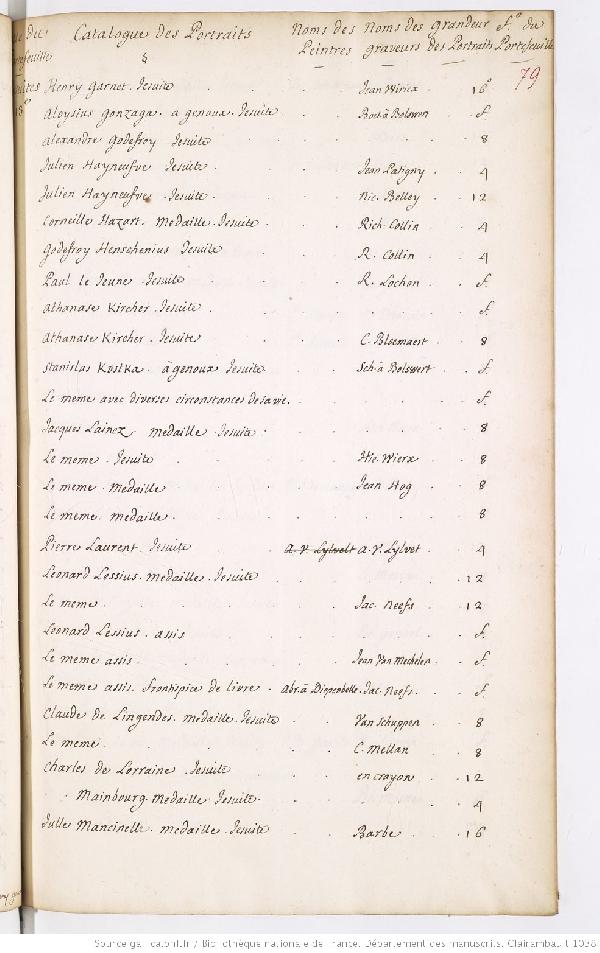 Catalogue des Portraits Noms des Peintres Noms des graveurs grandeur des Portraits f.º du Portefeuille
79
Henry Garnet. Jesuite Jean Wiricx 16º
Aloysius Gonzaga. a genoux. Jesuite Boet à Bolswon f.
Alexandre Godefroy Jesuite 8
Julien Hayneufue Jesuite Jean Patigny 4
Julien Hayneufue. Jesuite Nic. Belley 12
Corneille Hazart. Medaille. Jesuite Rich. Collin 4
Godefroy Henschenius Jesuite R. Collin 4
Paul le Jeune Jesuite R. Lochon f.
Athanase Kircher. Jesuite f.
Athanase Kircher. Jesuite C. Bloemaert 8
Stanislas Kostka. à genoux Jesuite Sch. à Bolswert f.
Le meme avec diverses circonstances de sa vie. f.
Jacques Lainez medaille Jesuite 8
Le meme. Jesuite Hie. Wierx 8
Le meme. Medaille Jean Hog 8
Le meme. medaille. 8
Pierre Laurent. Jesuite A. V. Lylvelt A. V. Lylvet 4
Leonard Lessius. medaille. Jesuite 12
Le meme Jac. Neefs 12
Leonard Lessius. assis f.
Le meme assis. Jean Van Mechelen f.
Le meme assis. frontispice de livre. Abr. à Diepenbeke. Jac. Neefs. f.
Claude de Lingendes. medaille. Jesuite Van Schuppen 8
Le meme. C. Mellan 8
Charles de Lorraine Jesuite en crayon 12
. Mainbourg. Medaille Jesuite. 4
Julle Mancinelle. medaille. Jesuite Barbe 16
Source gallica.bnf.fr / Bibliothèque nationale de France. Département des manuscrits. Clairambault 1038